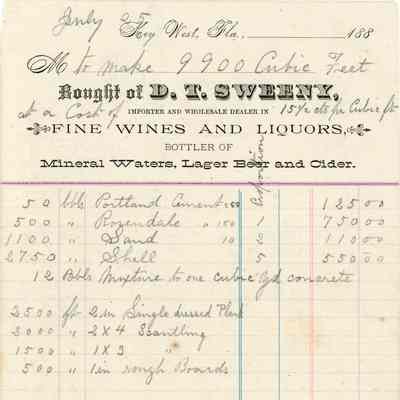 July 25
Key West, Fla. 188
M to make 9900 Cubic Feet
Bought of D. T. SWEENY,
at a Cost of IMPORTER AND WHOLESALE DEALER IN 15½ cts per Cubic ft
FINE WINES AND LIQUORS,
BOTTLER OF
Mineral Waters, Lager Beer and Cider.
50 bbls Portland Cement 250 125 00
500 " Rozendale " 150 1 750 00
1100 " Sand 10 20 110 00
2750 " Shell 5 550 00
12 Bbls Mixture to one cubic Yd concrete
2500 ft 2 in Single dressed Plank
2000 " 2 X 4 Scantling
1500 " 1 X 3 "
500 " 1 in rough Boards